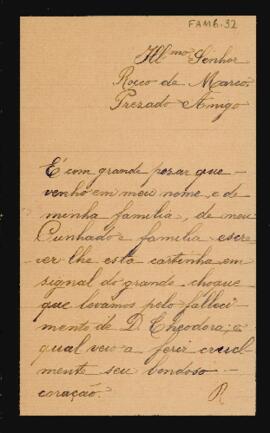 FAMB.32
Ill.mo Senhor
Rocco de Marco.
Prezado Amigo
É com grande pezar que
venho em meu nome e de
minha familia, de meu
Cunhado e familia escre
ver lhe esta cartinha em
signal do grande choque
que levamos pelo falleci
mento de D. Theodora, a
qual veio a ferir cruel
mente seu bondoso
coração.
R